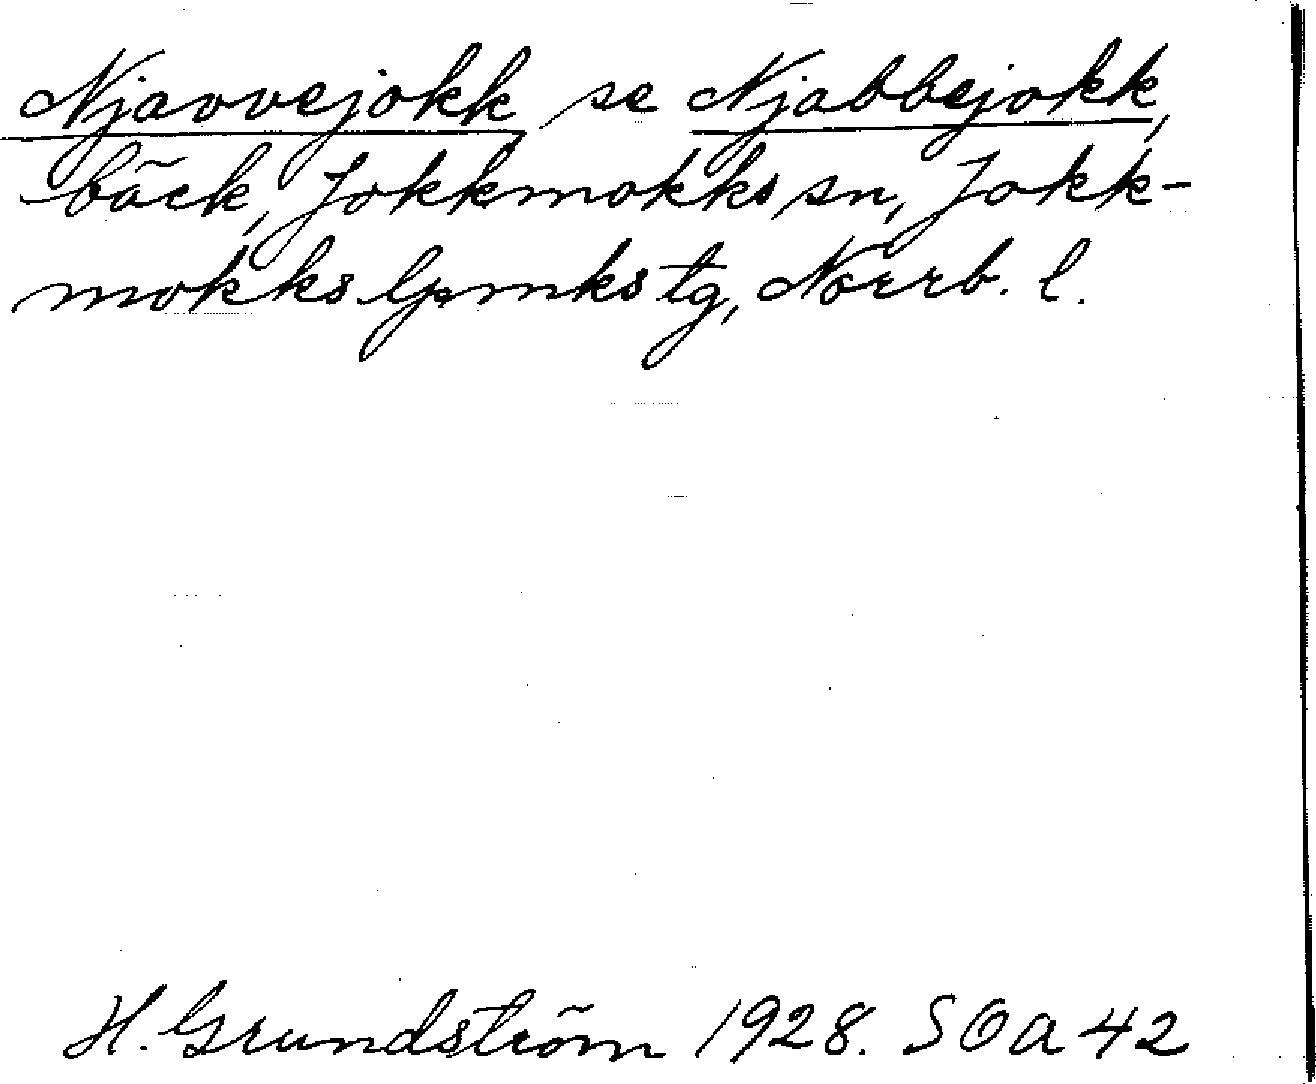 Njavvejokk se Njabbejokk,
bäck, Jokkmokks sn, Jokk-
mokks lpmks tg, Norrb. l.
H. Grundström 1928. SOA 42